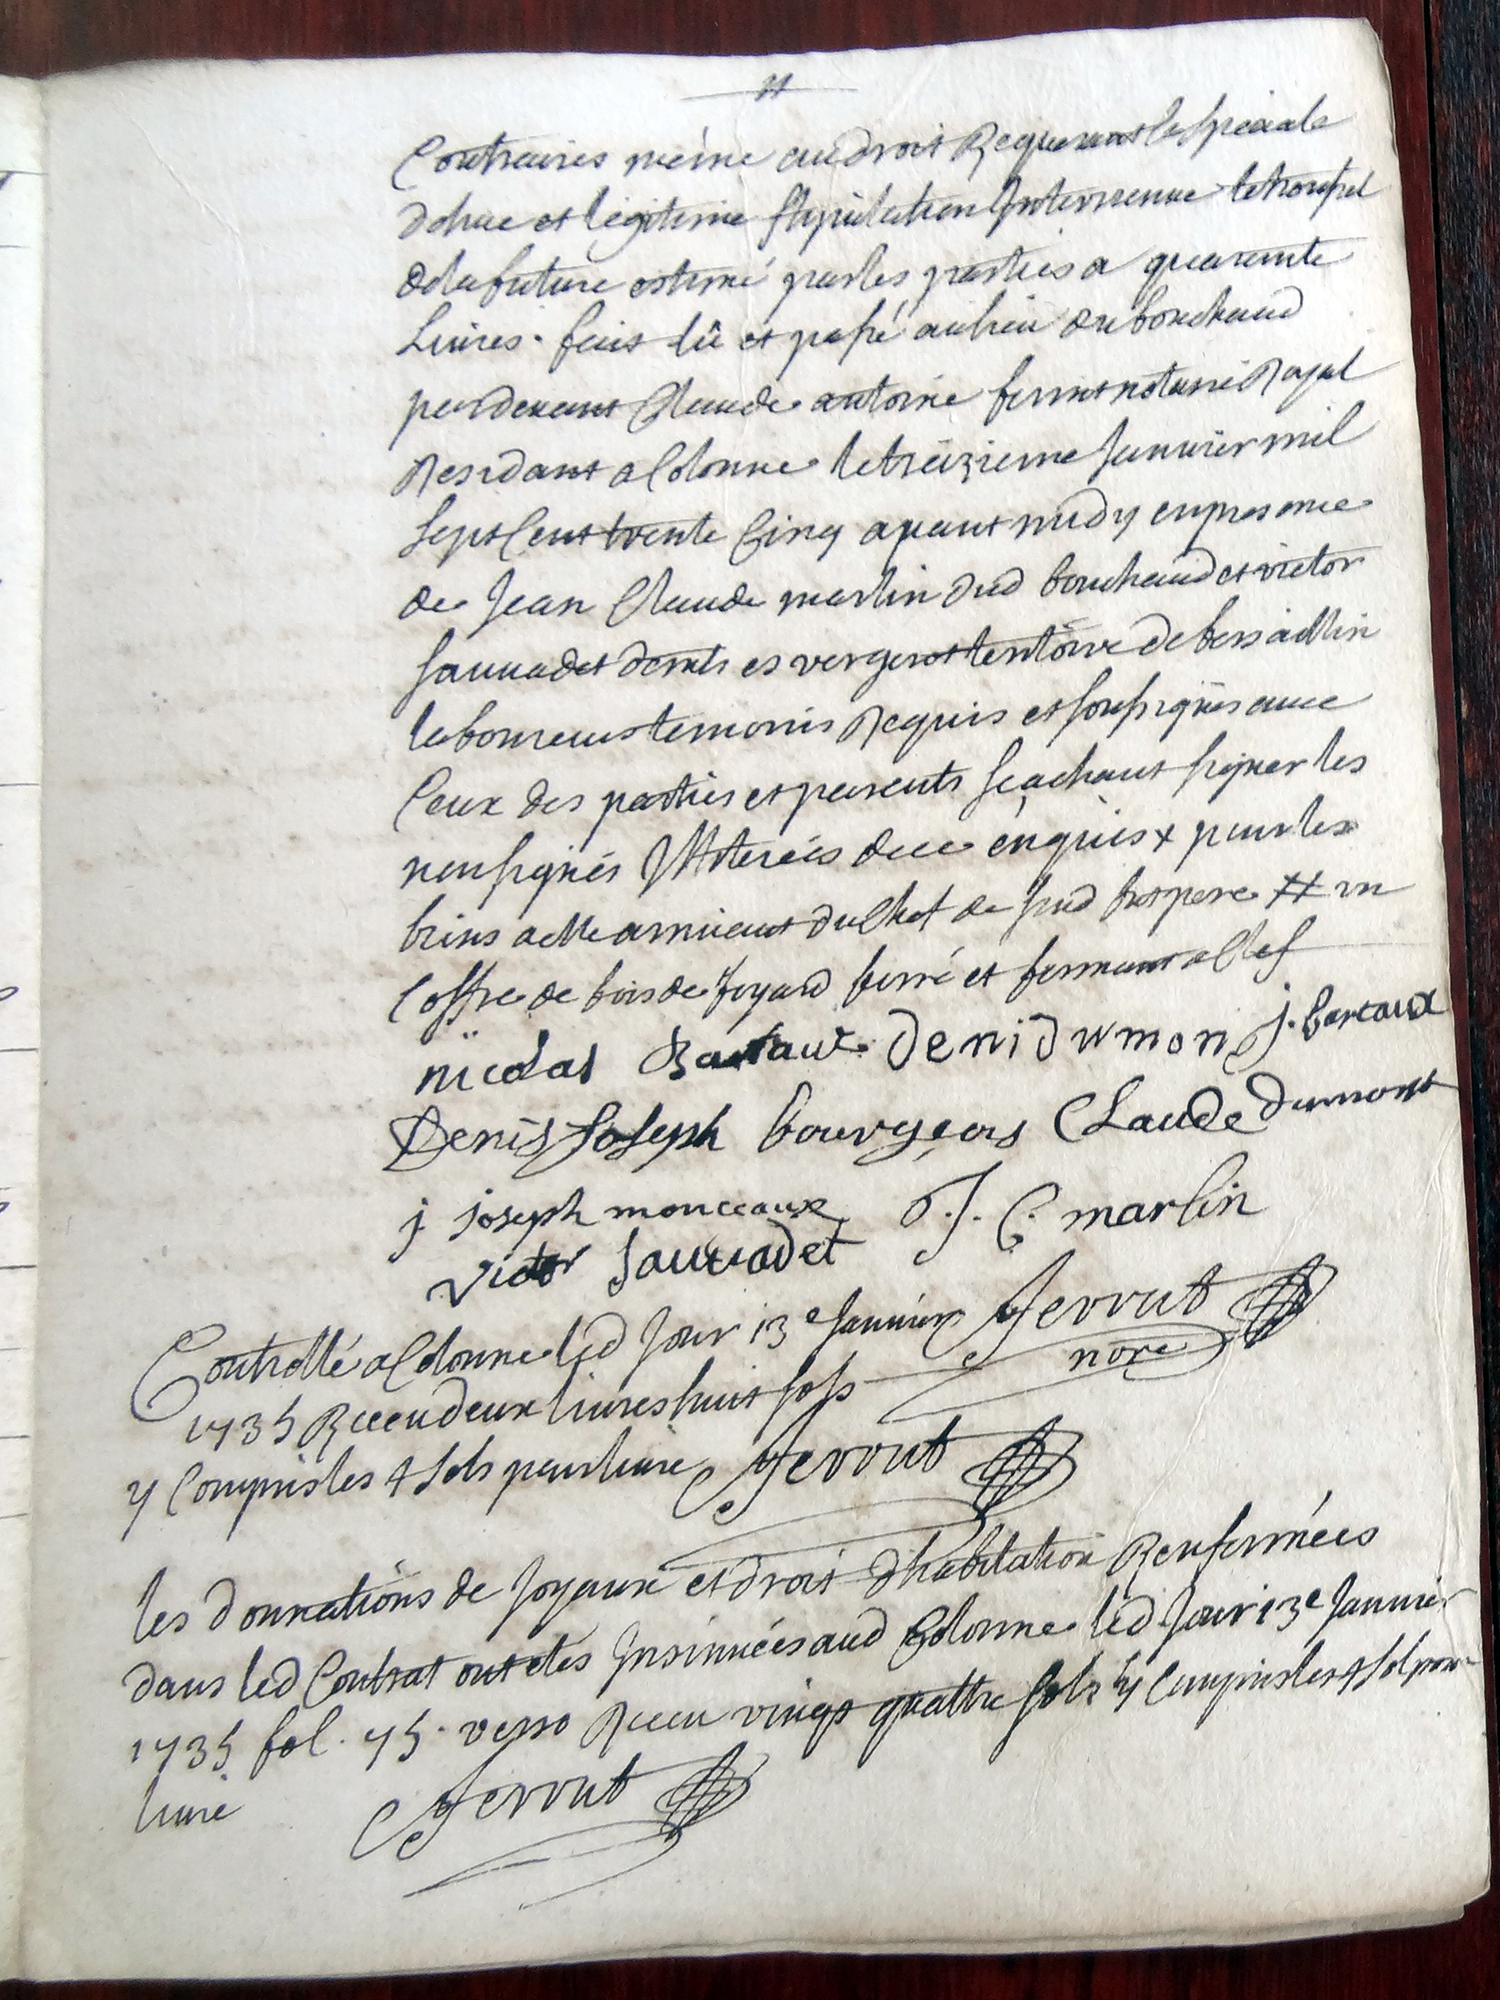 11
Contraires même au droit Requerant la speciale
dehue et légitime stipulation Intervenue le trousel
de la future estimé par les parties a quarante
Livres . fait lû et passé au lieu du bouchaud
pardevant Claude antoine ferrut notaire Royal
Residant a Colonne le treizieme Janvier mil
sept Cent trente Cinq avant midy en presence
de Jean Claude marlin dud bouchaud et victor
sauvadet demts es vergerot territoire de bersaillin
laboureurs temoins Requis et soussignés avec
Ceux des parties et parents sçachant signer les
non signés Illiterés de ce enquis x pour les
biens a elle arrivent du Chef de sud fut pere # un
Coffre de bois de foyard ferré et fermant a Clef
nicolas Bartaut denidumon j. bartaux
Denis Joseph bourgeois Claude dumont
j joseph monceaux J. C. marlin
victor sauvadet
ferrut
nore
Controllé a Colonne led Jour 13e Janvier
1735 Receu deux livres huit sols
y Compris les 4 sols pour livre ferrut
les donnations de Joyaux et droit d'habitation Renfermées
dans led Contrat ont etes Insinuées aud Colonne led Jour 13e Janvier
1735 fol. 75. verso Receu vingt quattre sols y Compris les 4 sol pour
livre ferrut